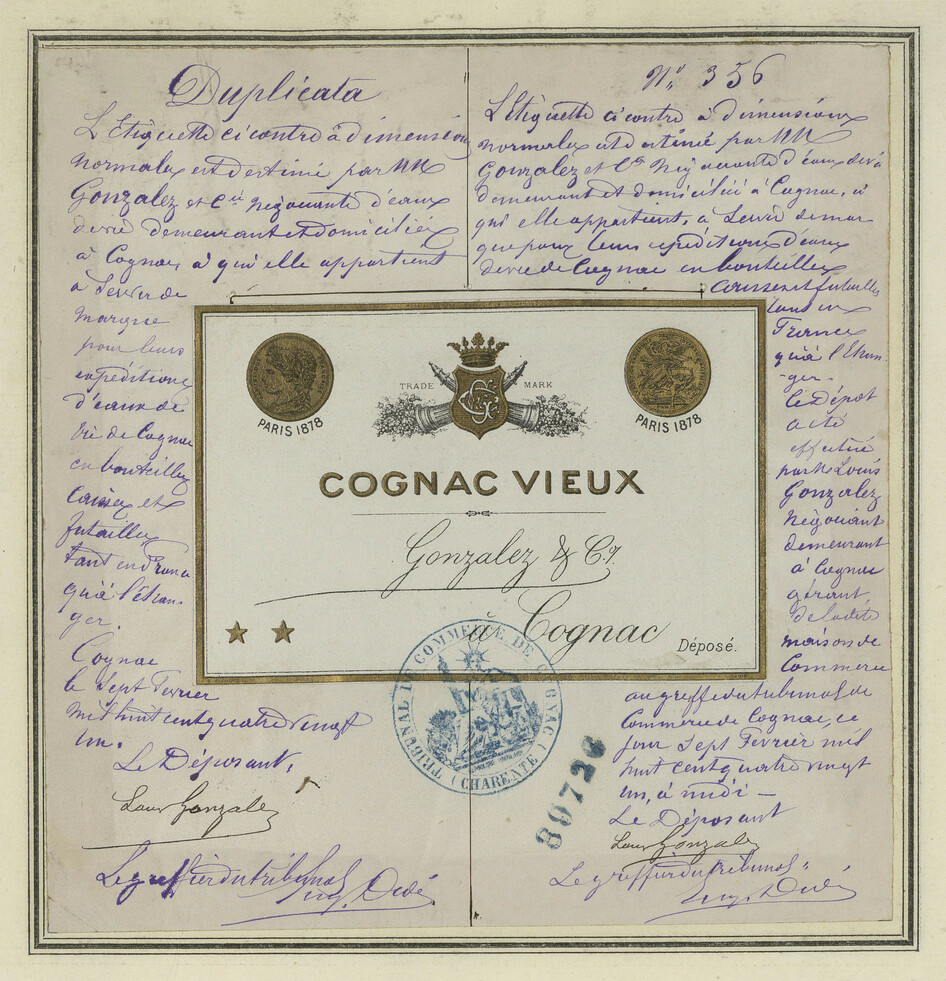 Duplicata
L'Etiquette ci contre à dimensions
normales est destinée par MM
Gonzalez et Cie Négociants d'eaux
de vie demeurant et domiciliés
à Cognac, à qui elle appartient
à Servir de
marque
pour leurs
expéditions
d'eaux de
Vie de Cognac
en bouteilles
Caisses et
futailles
tant en France
qu'à l'étran-
ger.
Cognac
le Sept Fevrier
mil huit cent quatre vingt
un.
Le Déposant,
Louis Gonzalez
Le greffier du tribunal
Eug. Dedé
No 356
L'Etiquette ci contre à dimensions
normales est destinée par MM
Gonzalez et Cie Négociants d'eaux de vie
demeurant et domiciliés à Cognac, à
qui elle appartient, à Servir de mar
que pour leurs expéditions d'eaux
de vie de Cognac en bouteilles
caisses et futailles
tant en
France
qu'à l'Etran-
-ger-
Le Dépôt
a été
effectué
par M. Louis
Gonzalez
Négociant
demeurant
à Cognac
gérant
de la dite
maison de
Commerce
au greffe du tribunal de
Commerce de Cognac, ce
jour Sept Fevrier mil
huit cent quatre vingt
un, à midi —
Le Déposant
Louis Gonzalez
Le greffier du tribunal
Eug. Dedé
PARIS 1878
TRADE MARK
PARIS 1878
COGNAC VIEUX
Gonzalez & Cy.
à Cognac
Déposé.
TRIBUNAL DE COMMERCE DE COGNAC
(CHARENTE)
80726